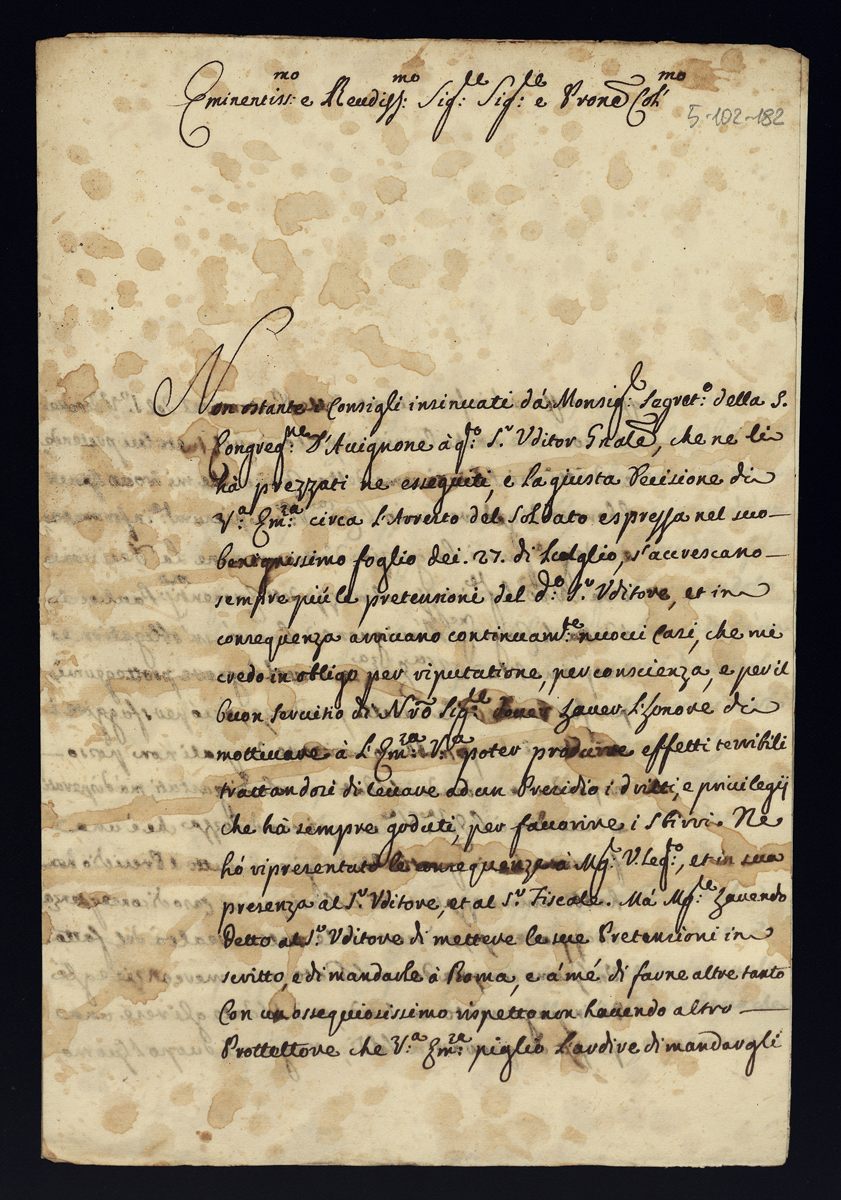 Eminentiss:mo e Reudiss:mo Sig:re Sig:re e Prone Col:mo
5-102-182
Non ostante i Consigli insinuati dà Monsig:r Segret:o della S.
Congreg:ne D'Auignone à q:to S.r Vditor Gnale, che ne li
hà prezzati ne esseguiti, e la giusta Decisione di
V:a Em:za circa l'Arresto del Soldato espressa nel suo
benignissimo foglio dei. 27. di Luglio, s'accrescano
sempre più le pretensioni del d:o S.r Vditore, et in
consequenza arriuano continuam:te nuoui Casi, che mi
credo in obligo per riputatione, per conscienza, e per il
buon Seruitio di Nro Sig:re hauer l'honore di
mottiuare à l'Em:za V:a poter produrre effetti terribili
trattandosi di leuare ad un Presidio i dritti, e priuilegij
che hà sempre goduti, per fauorire i Sbirri. Ne
hò ripresentato le consequenze à Mg:r V.Leg:o, et in sua
presenza al S.r Vditore, et al S.r Fiscale. Mà Mg:re hauendo
Detto al S.r Vditore di mettere le sue Pretensioni in
scritto, e di mandarle à Roma, e à mé di farne altre tanto
Con un ossequiosissimo rispetto non hauendo altro
Prottettore che V:a Em:za piglio l'ardire di mandargli